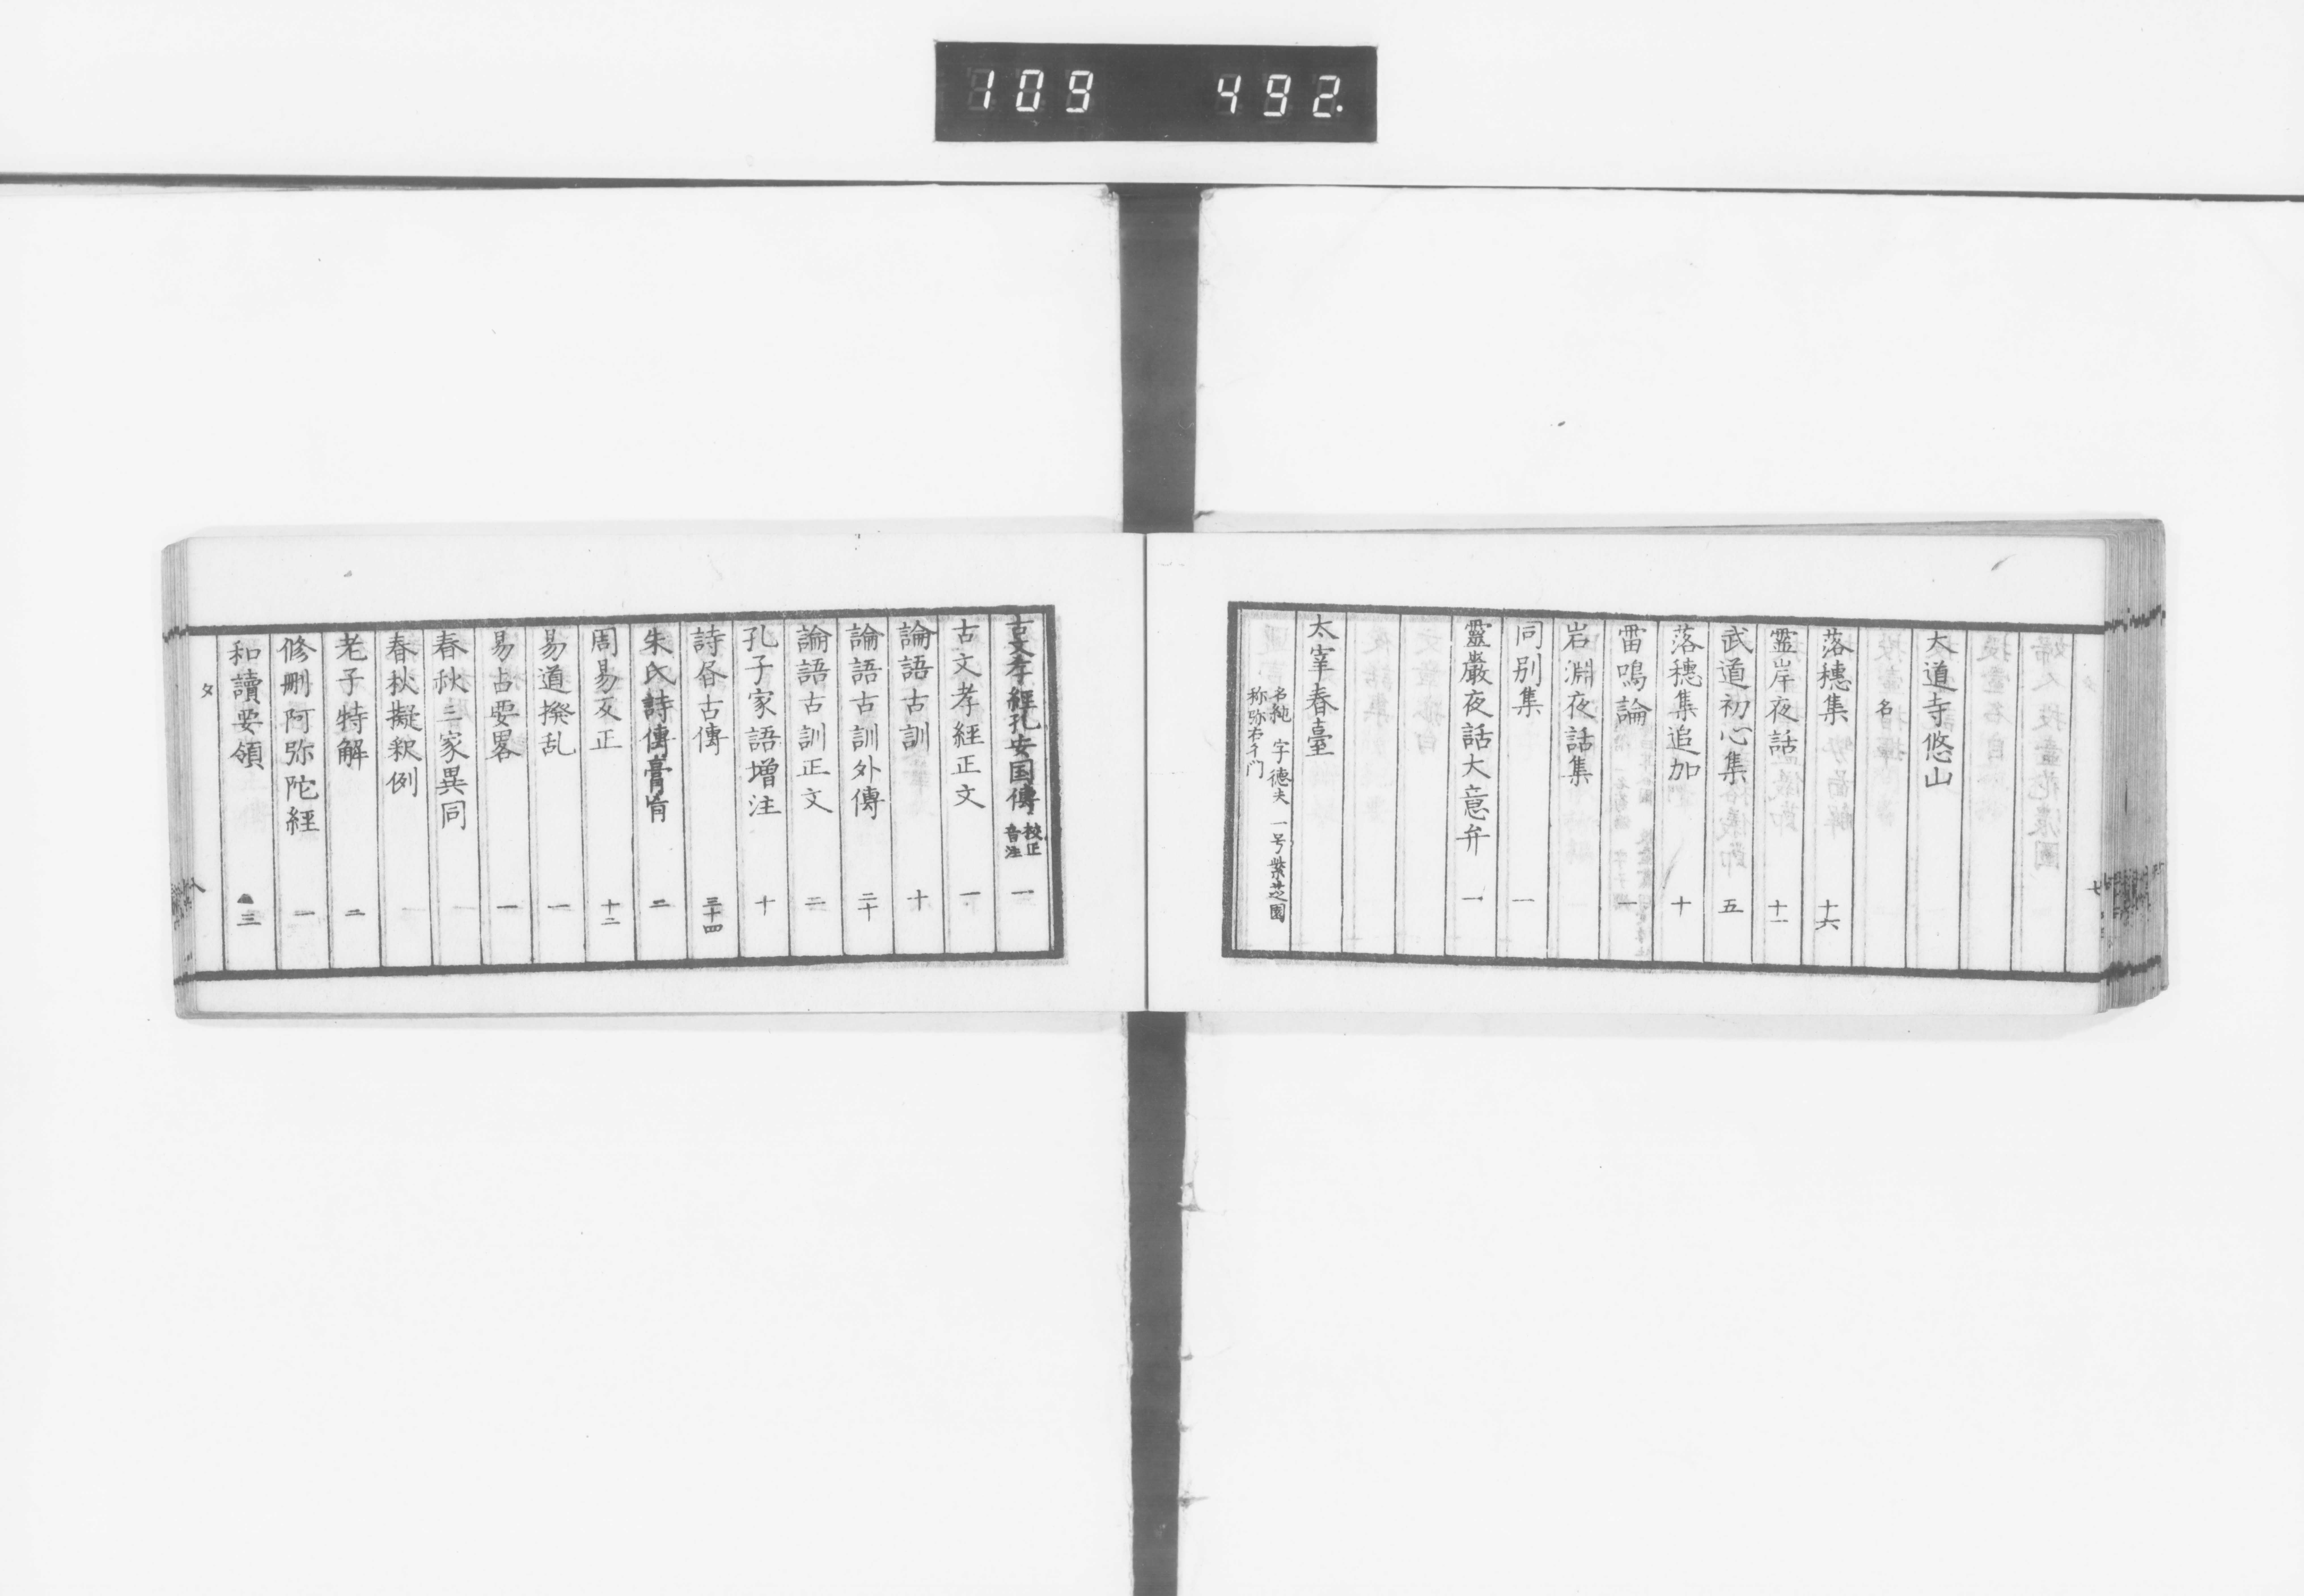 109 492.
大道寺悠山
名
落穂集 十六
霊岸夜話 十一
武道初心集 五
落穂集追加 十
雷鳴論 一
岩淵夜話集
同別集 一
靈巖夜話大意弁 一
太宰春臺
名純 字德夫 一号紫芝園
称弥右衛门
古文孝經孔安国傳 校正音注 一
古文孝經正文 一
論語古訓 十
論語古訓外傳 二十
論語古訓正文 二
孔子家語增注 十
詩昏古傳 三十四
朱氏詩傳膏肓 二
周易反正 十二
易道撥乱 一
易占要畧 一
春秋三家異同
春秋擬釈例
老子特解 二
修刪阿弥陀經 一
和讀要領 三
タ